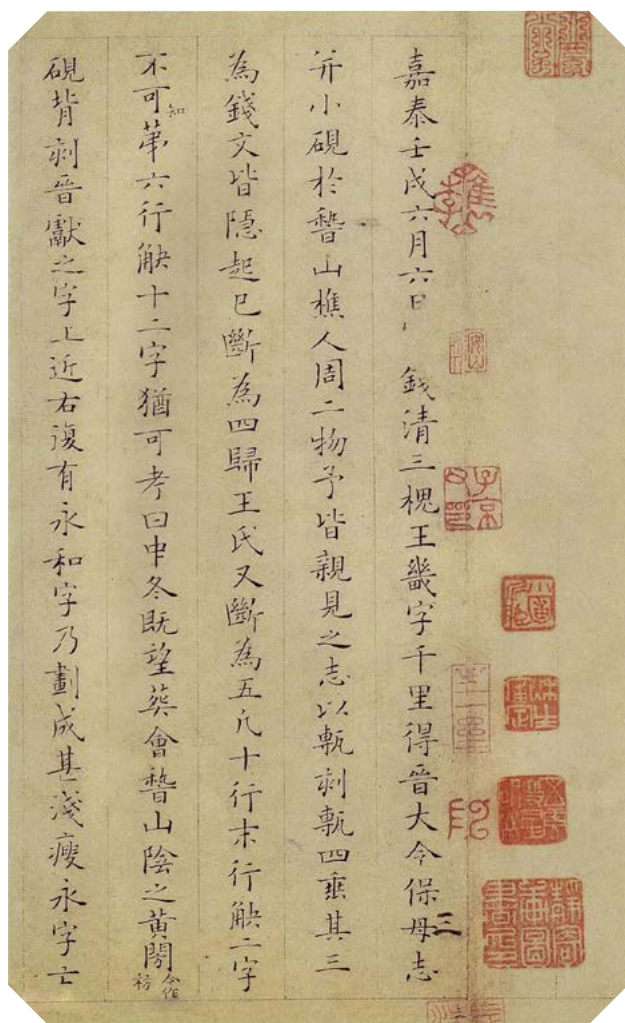 檇李
子京父印
嘉泰壬戌六月六日 錢清三槐王畿字千里得晉大令保母志
三
并小硯於稽山樵人周二物予皆親見之志以甎刻甎四垂其三
為錢文皆隱起已斷為四歸王氏又斷為五凡十行末行觖二字
不可知第六行觖十二字猶可考曰中冬既望葬會稽山陰之黃閍今作祊
硯背刻晉獻之字上近右復有永和字乃劃成甚淺瘦永字亡